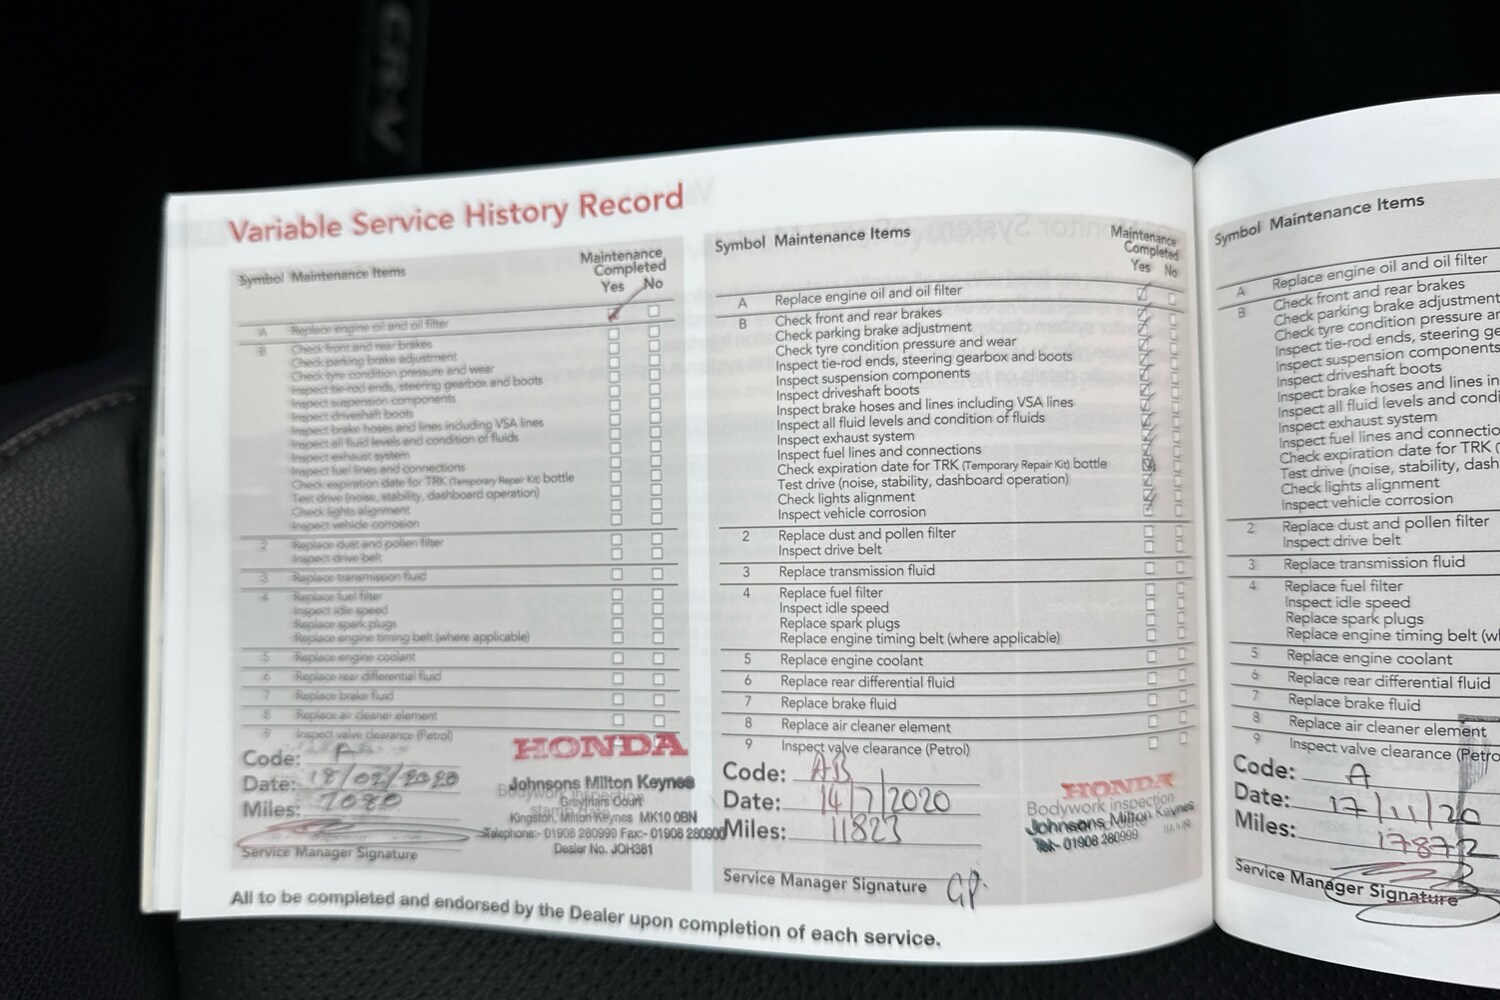 CR-V
Variable Service History Record
Symbol Maintenance Items
Maintenance Completed
Yes No
A Replace engine oil and oil filter
B Check front and rear brakes
Check parking brake adjustment
Check tyre condition pressure and wear
Inspect tie-rod ends, steering gearbox and boots
Inspect suspension components
Inspect driveshaft boots
Inspect brake hoses and lines including VSA lines
Inspect all fluid levels and condition of fluids
Inspect exhaust system
Inspect fuel lines and connections
Check expiration date for TRK (Temporary Repair Kit) bottle
Test drive (noise, stability, dashboard operation)
Check lights alignment
Inspect vehicle corrosion
2 Replace dust and pollen filter
Inspect drive belt
3 Replace transmission fluid
4 Replace fuel filter
Inspect idle speed
Replace spark plugs
Replace engine timing belt (where applicable)
5 Replace engine coolant
6 Replace rear differential fluid
7 Replace brake fluid
8 Replace air cleaner element
9 Inspect valve clearance (Petrol)
Code: A
Date: 18/02/2020
Miles: 7080
Service Manager Signature
HONDA
Johnsons Milton Keynes
Bodywork inspection
Greyfriars Court
Kingston, Milton Keynes MK10 0BN
Telephone:- 01908 280999 Fax:- 01908 280900
Dealer No. JOH381
Symbol Maintenance Items
Maintenance Completed
Yes No
A Replace engine oil and oil filter
B Check front and rear brakes
Check parking brake adjustment
Check tyre condition pressure and wear
Inspect tie-rod ends, steering gearbox and boots
Inspect suspension components
Inspect driveshaft boots
Inspect brake hoses and lines including VSA lines
Inspect all fluid levels and condition of fluids
Inspect exhaust system
Inspect fuel lines and connections
Check expiration date for TRK (Temporary Repair Kit) bottle
Test drive (noise, stability, dashboard operation)
Check lights alignment
Inspect vehicle corrosion
2 Replace dust and pollen filter
Inspect drive belt
3 Replace transmission fluid
4 Replace fuel filter
Inspect idle speed
Replace spark plugs
Replace engine timing belt (where applicable)
5 Replace engine coolant
6 Replace rear differential fluid
7 Replace brake fluid
8 Replace air cleaner element
9 Inspect valve clearance (Petrol)
Code: AB
Date: 14/7/2020
Miles: 11823
Service Manager Signature GP.
HONDA
Bodywork inspection
Johnsons Milton Keynes
Tel:- 01908 280999
All to be completed and endorsed by the Dealer upon completion of each service.
Symbol Maintenance Items
A Replace engine oil and oil filter
B Check front and rear brakes
Check parking brake adjustment
Check tyre condition pressure an
Inspect tie-rod ends, steering ge
Inspect suspension components
Inspect driveshaft boots
Inspect brake hoses and lines in
Inspect all fluid levels and condi
Inspect exhaust system
Inspect fuel lines and connectio
Check expiration date for TRK (
Test drive (noise, stability, dash
Check lights alignment
Inspect vehicle corrosion
2 Replace dust and pollen filter
Inspect drive belt
3 Replace transmission fluid
4 Replace fuel filter
Inspect idle speed
Replace spark plugs
Replace engine timing belt (wh
5 Replace engine coolant
6 Replace rear differential fluid
7 Replace brake fluid
8 Replace air cleaner element
9 Inspect valve clearance (Petro
Code: A
Date: 17/11/20
Miles: 17872
Service Manager Signature